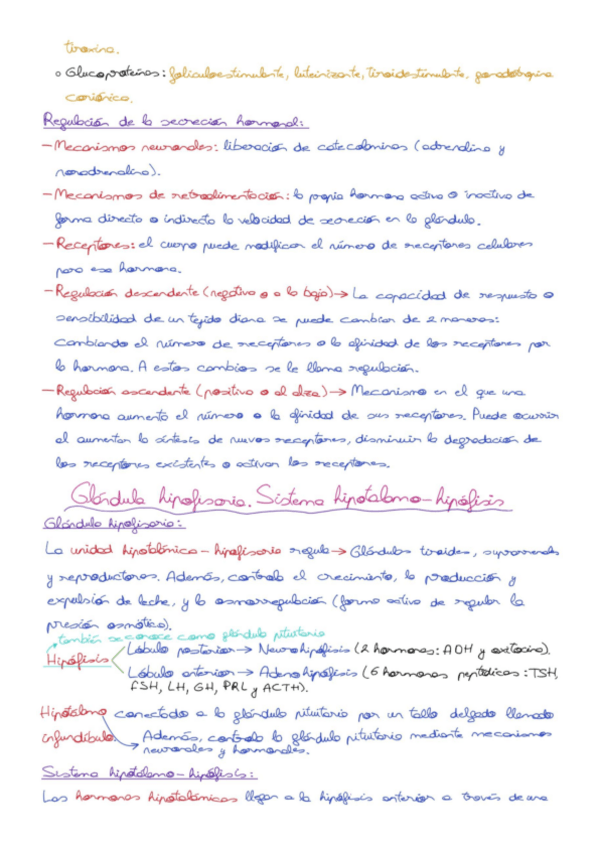 tiroxina.
o Glucoproteínas: foliculoestimulante, luteinizante, tiroidestimulante, gonadotropina
coriónica.
Regulación de la secreción hormonal:
- Mecanismos neuronales: liberación de catecolaminas (adrenalina y
noradrenalina).
- Mecanismos de retroalimentación: la propia hormona activa o inactiva de
forma directa o indirecta la velocidad de secreción en la glándula.
- Receptores: el cuerpo puede modificar el número de receptores celulares
para esa hormona.
- Regulación descendente (negativa o a la baja) → La capacidad de respuesta o
sensibilidad de un tejido diana se puede cambiar de 2 maneras:
cambiando el número de receptores o la afinidad de los receptores por
la hormona. A estos cambios se le llama regulación.
- Regulación ascendente (positiva o al alza) → Mecanismo en el que una
hormona aumenta el número o la afinidad de sus receptores. Puede ocurrir
al aumentar la síntesis de nuevos receptores, disminuir la degradación de
los receptores existentes o activar los receptores.
Glándula hipofisaria. Sistema hipotálamo-hipófisis
Glándula hipofisaria:
La unidad hipotalámica-hipofisaria regula → Glándulas tiroides, suprarrenales
y reproductoras. Además, controla el crecimiento, la producción y
expulsión de leche, y la osmorregulación (forma activa de regular la
presión osmótica).
también se conoce como glándula pituitaria
Hipófisis
Lóbulo posterior → Neurohipófisis (2 hormonas: ADH y oxitocina).
Lóbulo anterior → Adenohipófisis (6 hormonas peptídicas: TSH,
FSH, LH, GH, PRL y ACTH).
Hipotálamo conectado a la glándula pituitaria por un tallo delgado llamado
infundíbulo. Además, controla la glándula pituitaria mediante mecanismos
neuronales y hormonales.
Sistema hipotálamo-hipófisis:
Las hormonas hipotalámicas llegan a la hipófisis anterior a través de una